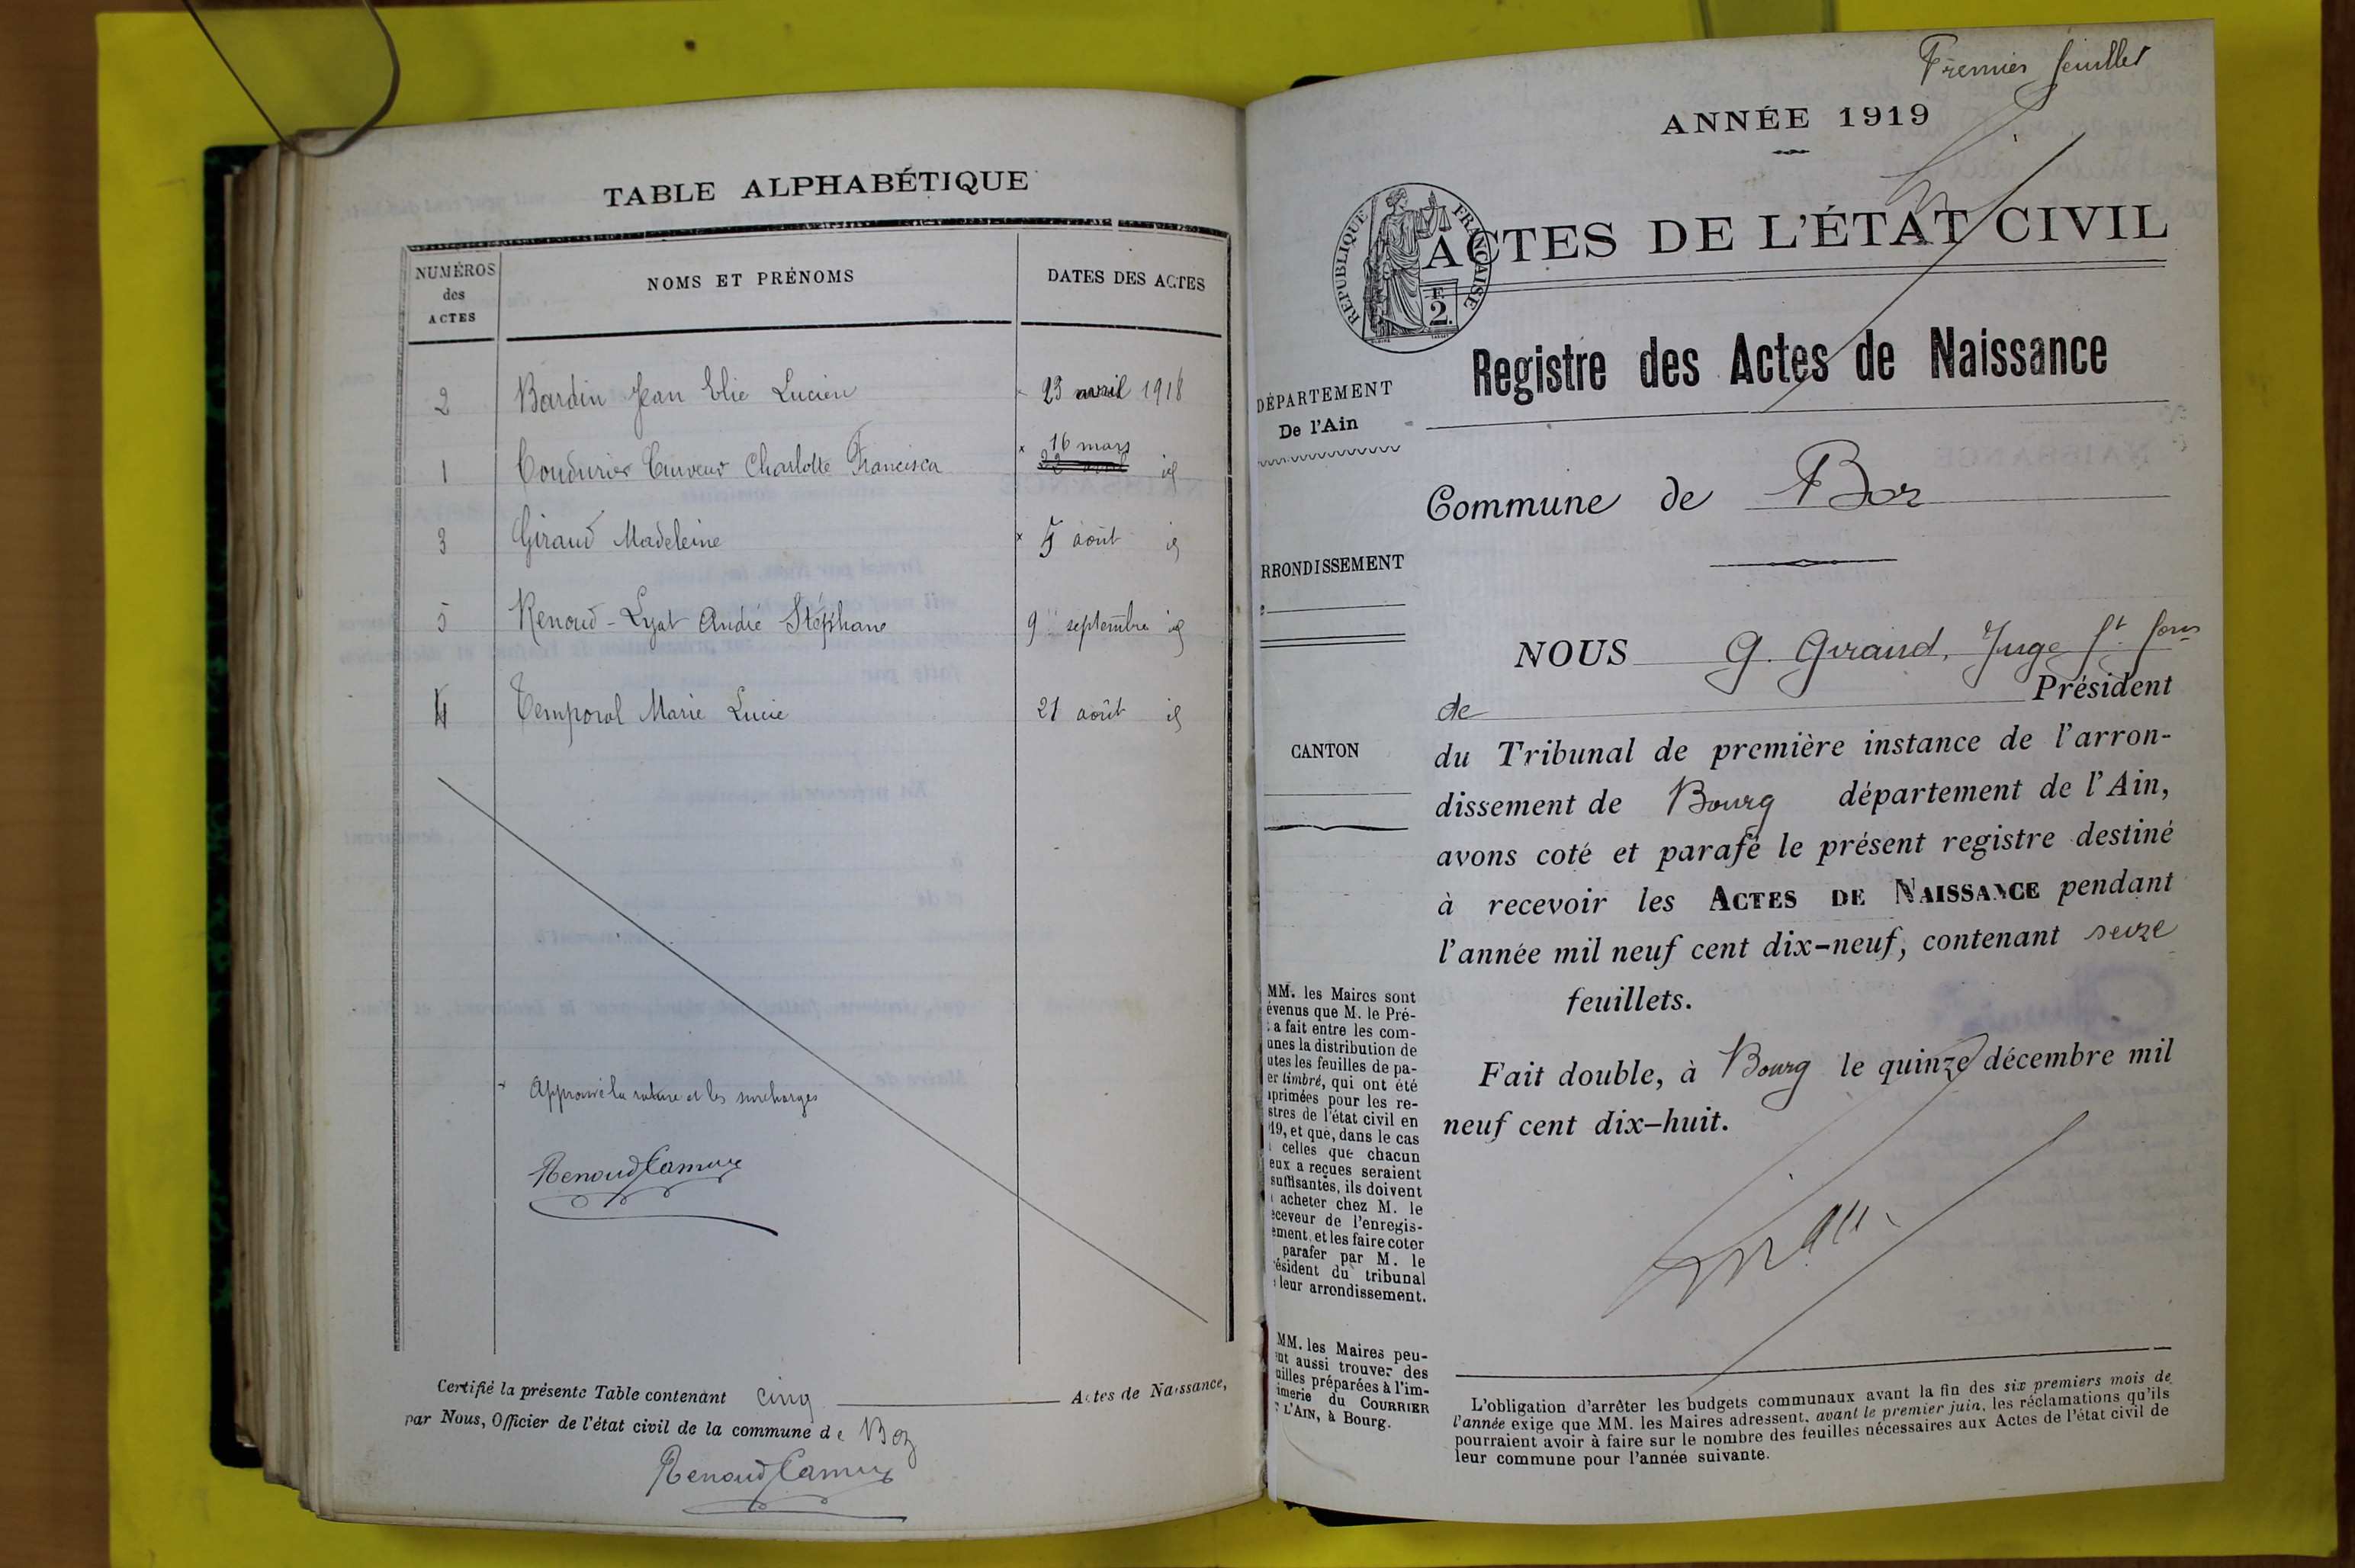 TABLE ALPHABÉTIQUE
NUMÉROS
des
ACTES
NOMS ET PRÉNOMS
DATES DES ACTES
2 Bardin Jean Elie Lucien × 23 avril 1918
× 16 mars
1 Coudurier Charlotte Francisca 22 avril id
3 Giraud Madeleine × 5 août id
5 Renoud-Lyat André Stéphane 9 septembre id
4 Temporal Marie Lucie 21 août id
× Approuvé la rature et les surcharges
Renoud Camus
Certifié la présente Table contenant cinq Actes de Naissance,
par Nous, Officier de l'état civil de la commune de Boz
Renoud Camus
Premier feuillet
ANNÉE 1919
RÉPUBLIQUE FRANÇAISE
F
2
ACTES DE L'ÉTAT CIVIL
Registre des Actes de Naissance
DÉPARTEMENT
De l'Ain
Commune de Boz
RRONDISSEMENT
NOUS G. Giraud, Juge
de Président
CANTON
du Tribunal de première instance de l'arron-
dissement de Bourg département de l'Ain,
avons coté et parafé le présent registre destiné
à recevoir les ACTES DE NAISSANCE pendant
l'année mil neuf cent dix-neuf, contenant seize
feuillets.
Fait double, à Bourg le quinze décembre mil
neuf cent dix-huit.
MM. les Maires sont
évenus que M. le Pré-
t a fait entre les com-
unes la distribution de
utes les feuilles de pa-
er timbré, qui ont été
primées pour les re-
stres de l'état civil en
19, et que, dans le cas
celles que chacun
eux a reçues seraient
suffisantes, ils doivent
acheter chez M. le
eceveur de l'enregis-
ement, et les faire coter
parafer par M. le
ésident du tribunal
leur arrondissement.
MM. les Maires peu-
nt aussi trouver des
uilles préparées à l'im-
imerie du COURRIER
L'AIN, à Bourg.
L'obligation d'arrêter les budgets communaux avant la fin des six premiers mois de
l'année exige que MM. les Maires adressent, avant le premier juin, les réclamations qu'ils
pourraient avoir à faire sur le nombre des feuilles nécessaires aux Actes de l'état civil de
leur commune pour l'année suivante.